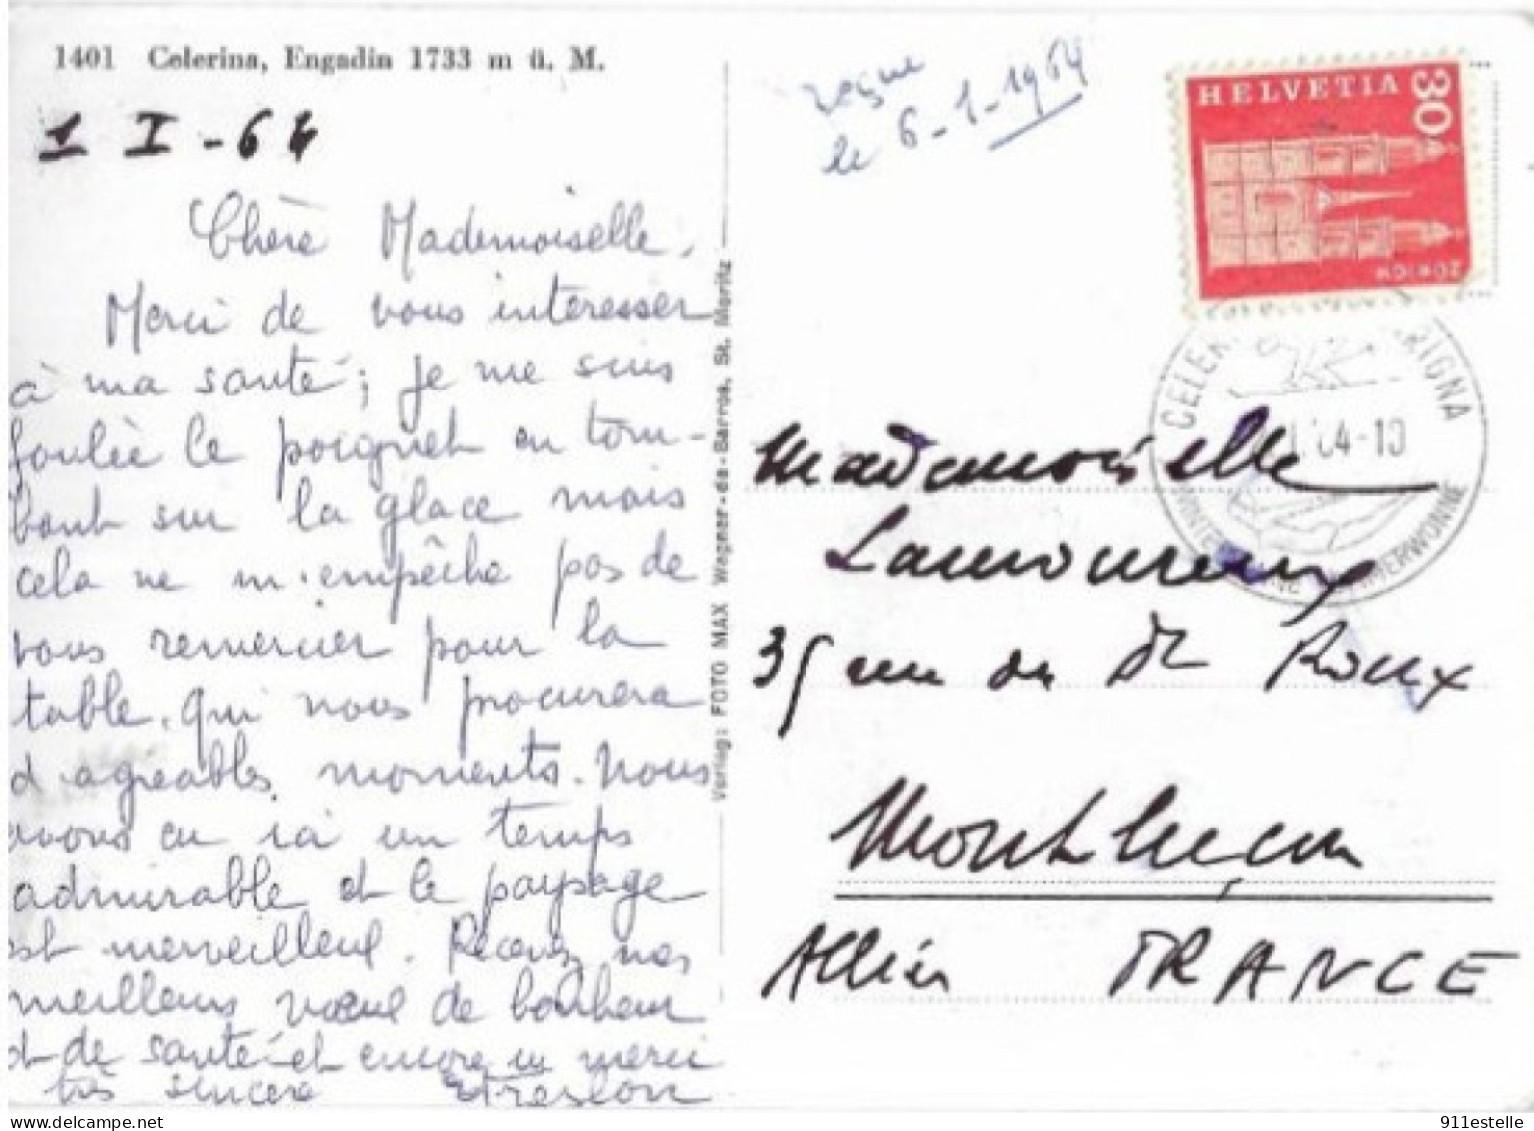 1401 Celerina, Engadin 1733 m ü. M.
1 I - 64
Chère Mademoiselle,
Merci de vous interesser
à ma santé ; je me suis
foulée le poignet en tom-
bant sur la glace mais
cela ne m'empêche pas de
vous remercier pour la
table. qui nous procurera
d'agreables moments. Nous
avons eu ici un temps
admirable et le paysage
est merveilleux. Recevez nos
meilleurs vœux de bonheur
et de santé et encore un merci
très sincere
Verlag: FOTO MAX Wagner-da-Barros, St. Moritz
reçue
le 6-1-1964
HELVETIA
30
ZÜRICH
CELER RIGNA
64-10
WINTE ERWONNE
Mademoiselle
Lamoureux
35 rue du Dr Roux
Montluçon
Allier FRANCE
911estelle